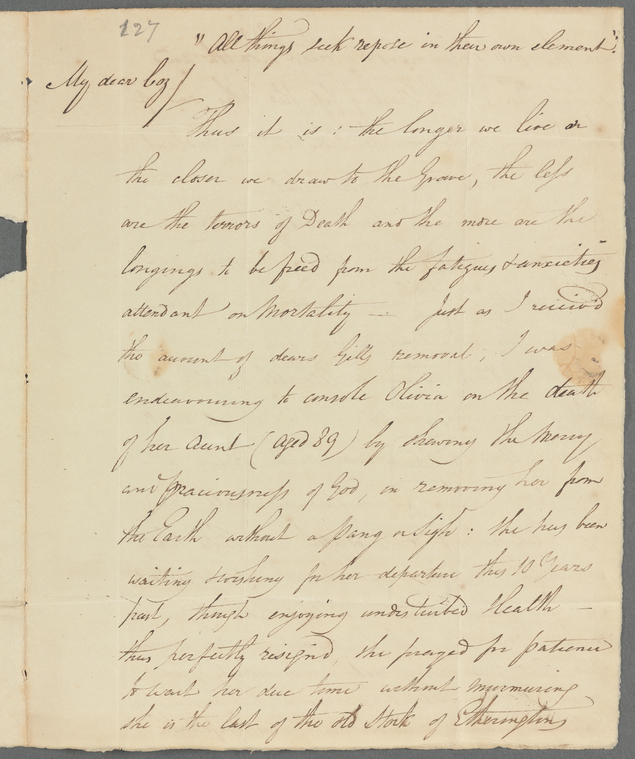 127
" All things seek repose in their own element".
My dear Coz /
Thus it is : the longer we live or
the closer we draw to the Grave, the less
are the terrors of Death and the more are the
longings to be freed from the fatigues & anxieties
attendant on Mortality — Just as I receiv'd
the account of dears Gills removal, I was
endeavouring to console Olivia on the death
of her Aunt (aged 89) by shewing the Mercy
and Graciousness of God, in removing her from
the Earth without a Pang or Sigh : she has been
waiting & wishing for her departure this 10 Years
past, though enjoying undisturbed Health —
thus perfectly resign'd, she prayed for patience
to wait her due time without murmuring
she is the last of the old Stock of Etheringtons